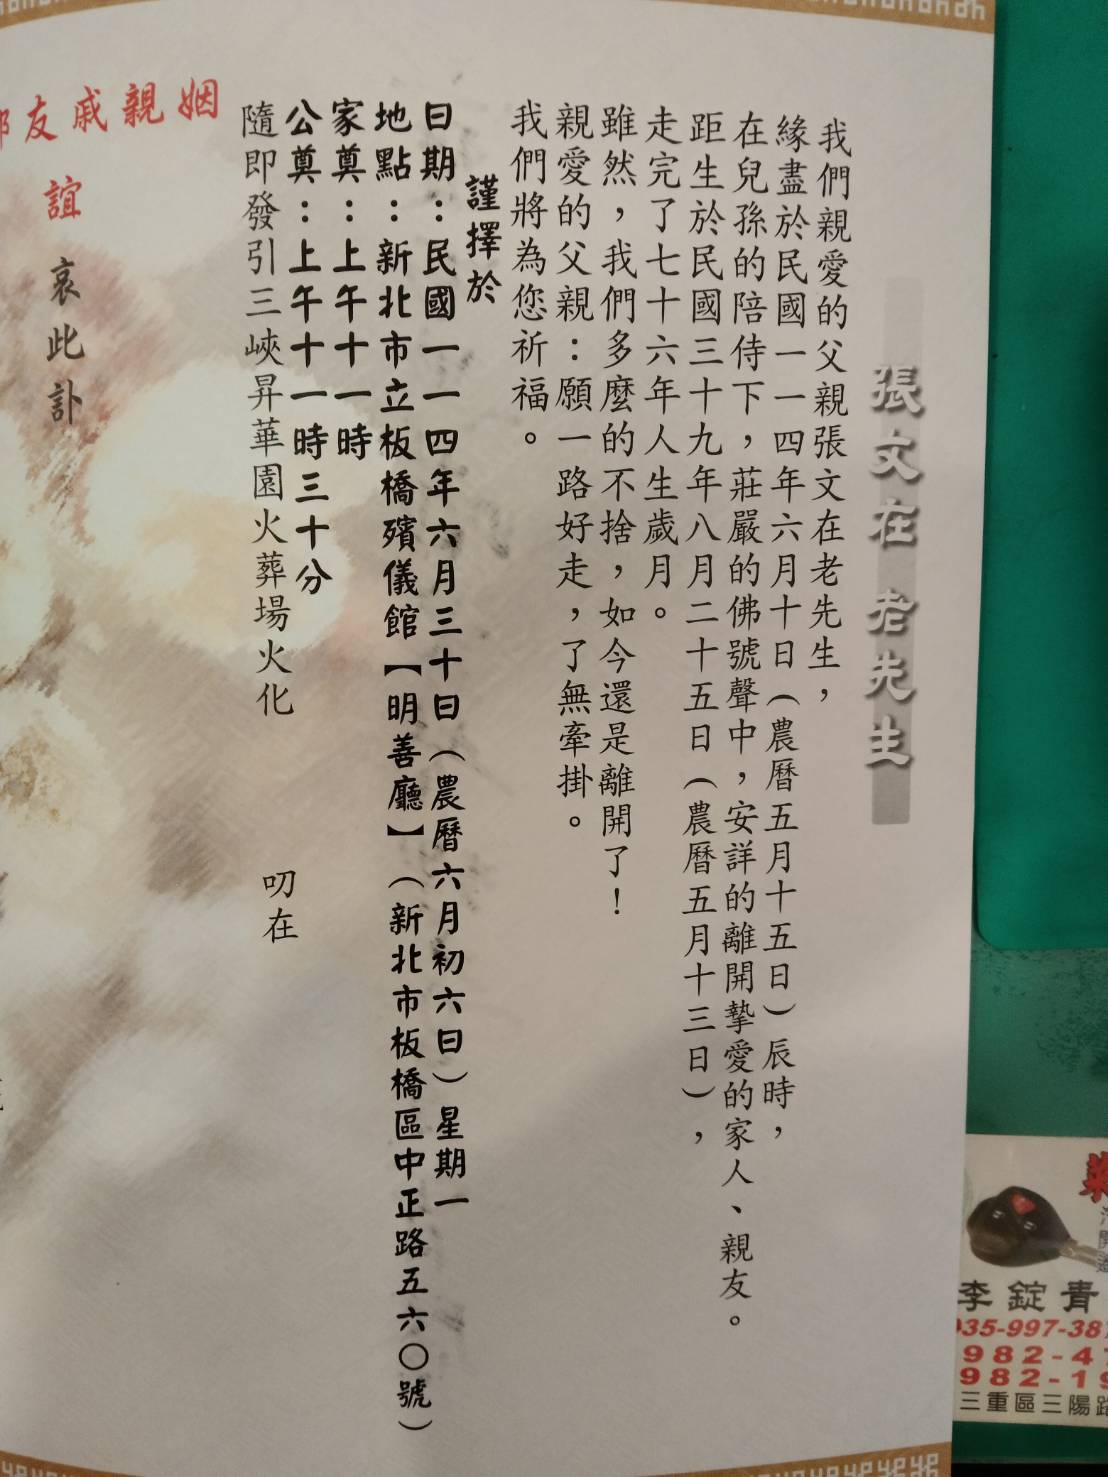 張文在 老先生
我們親愛的父親張文在老先生，
緣盡於民國一一四年六月十日（農曆五月十五日）辰時，
在兒孫的陪侍下，莊嚴的佛號聲中，安詳的離開摯愛的家人、親友。
距生於民國三十九年八月二十五日（農曆五月十三日），
走完了七十六年人生歲月。
雖然，我們多麼的不捨，如今還是離開了！
親愛的父親：願一路好走，了無牽掛。
我們將為您祈福。
謹擇於
日期：民國一一四年六月三十日（農曆六月初六日）星期一
地點：新北市立板橋殯儀館【明善廳】（新北市板橋區中正路五六〇號）
家奠：上午十一時
公奠：上午十一時三十分
隨即發引三峽昇華園火葬場火化
叨在
姻親戚友
誼
哀此訃
李錠青
35-997-38
982-4
982-19
三重區三陽路